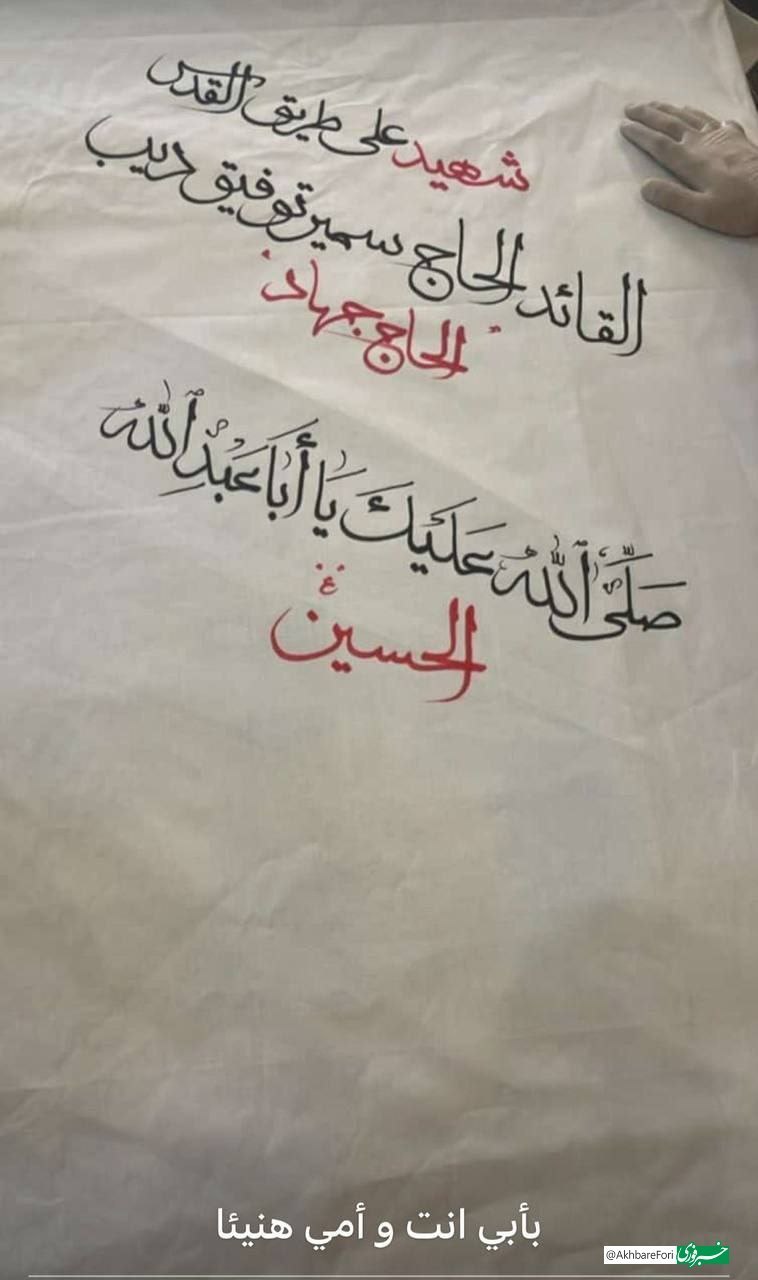 شهيد على طريق القدس
القائد الحاج سمير توفيق ديب
"الحاج جهاد"
صَلَّى ٱللهُ عَلَيكَ يَا أَبَا عَبدِ ٱللهِ
الحسين
ع
بأبي انت و أمي هنيئا
@AkhbareFori خبرفوری